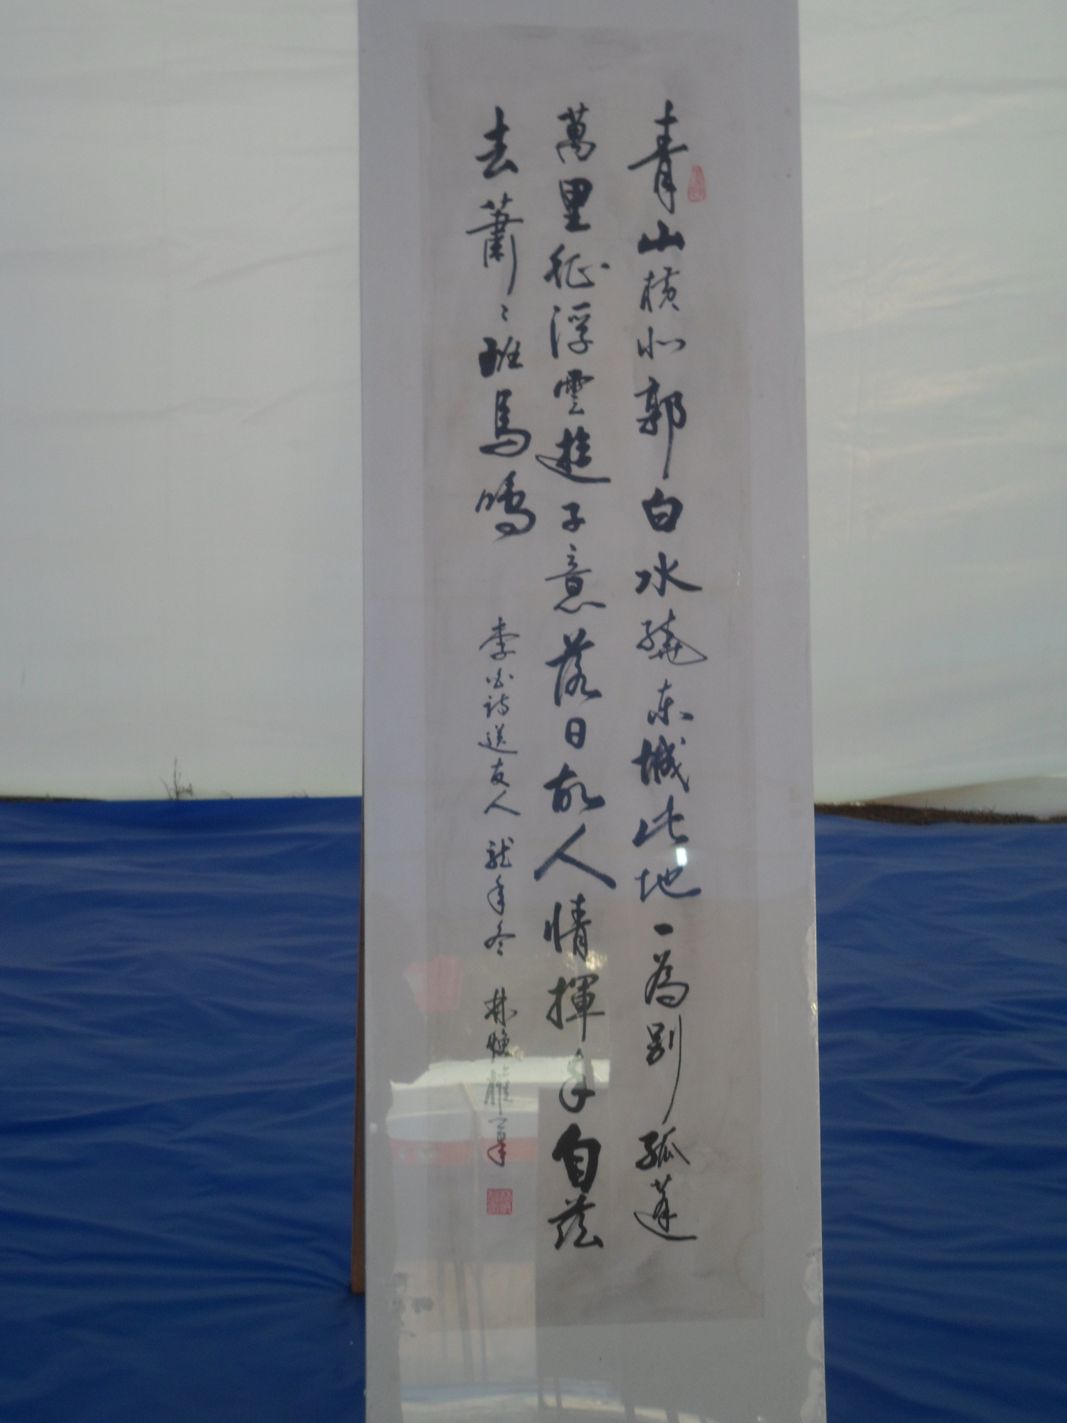 青山橫北郭白水繞東城此地一為別孤蓬
萬里征浮雲遊子意落日故人情揮手自茲
去蕭〻班馬鳴
李白詩送友人 龍年冬 林